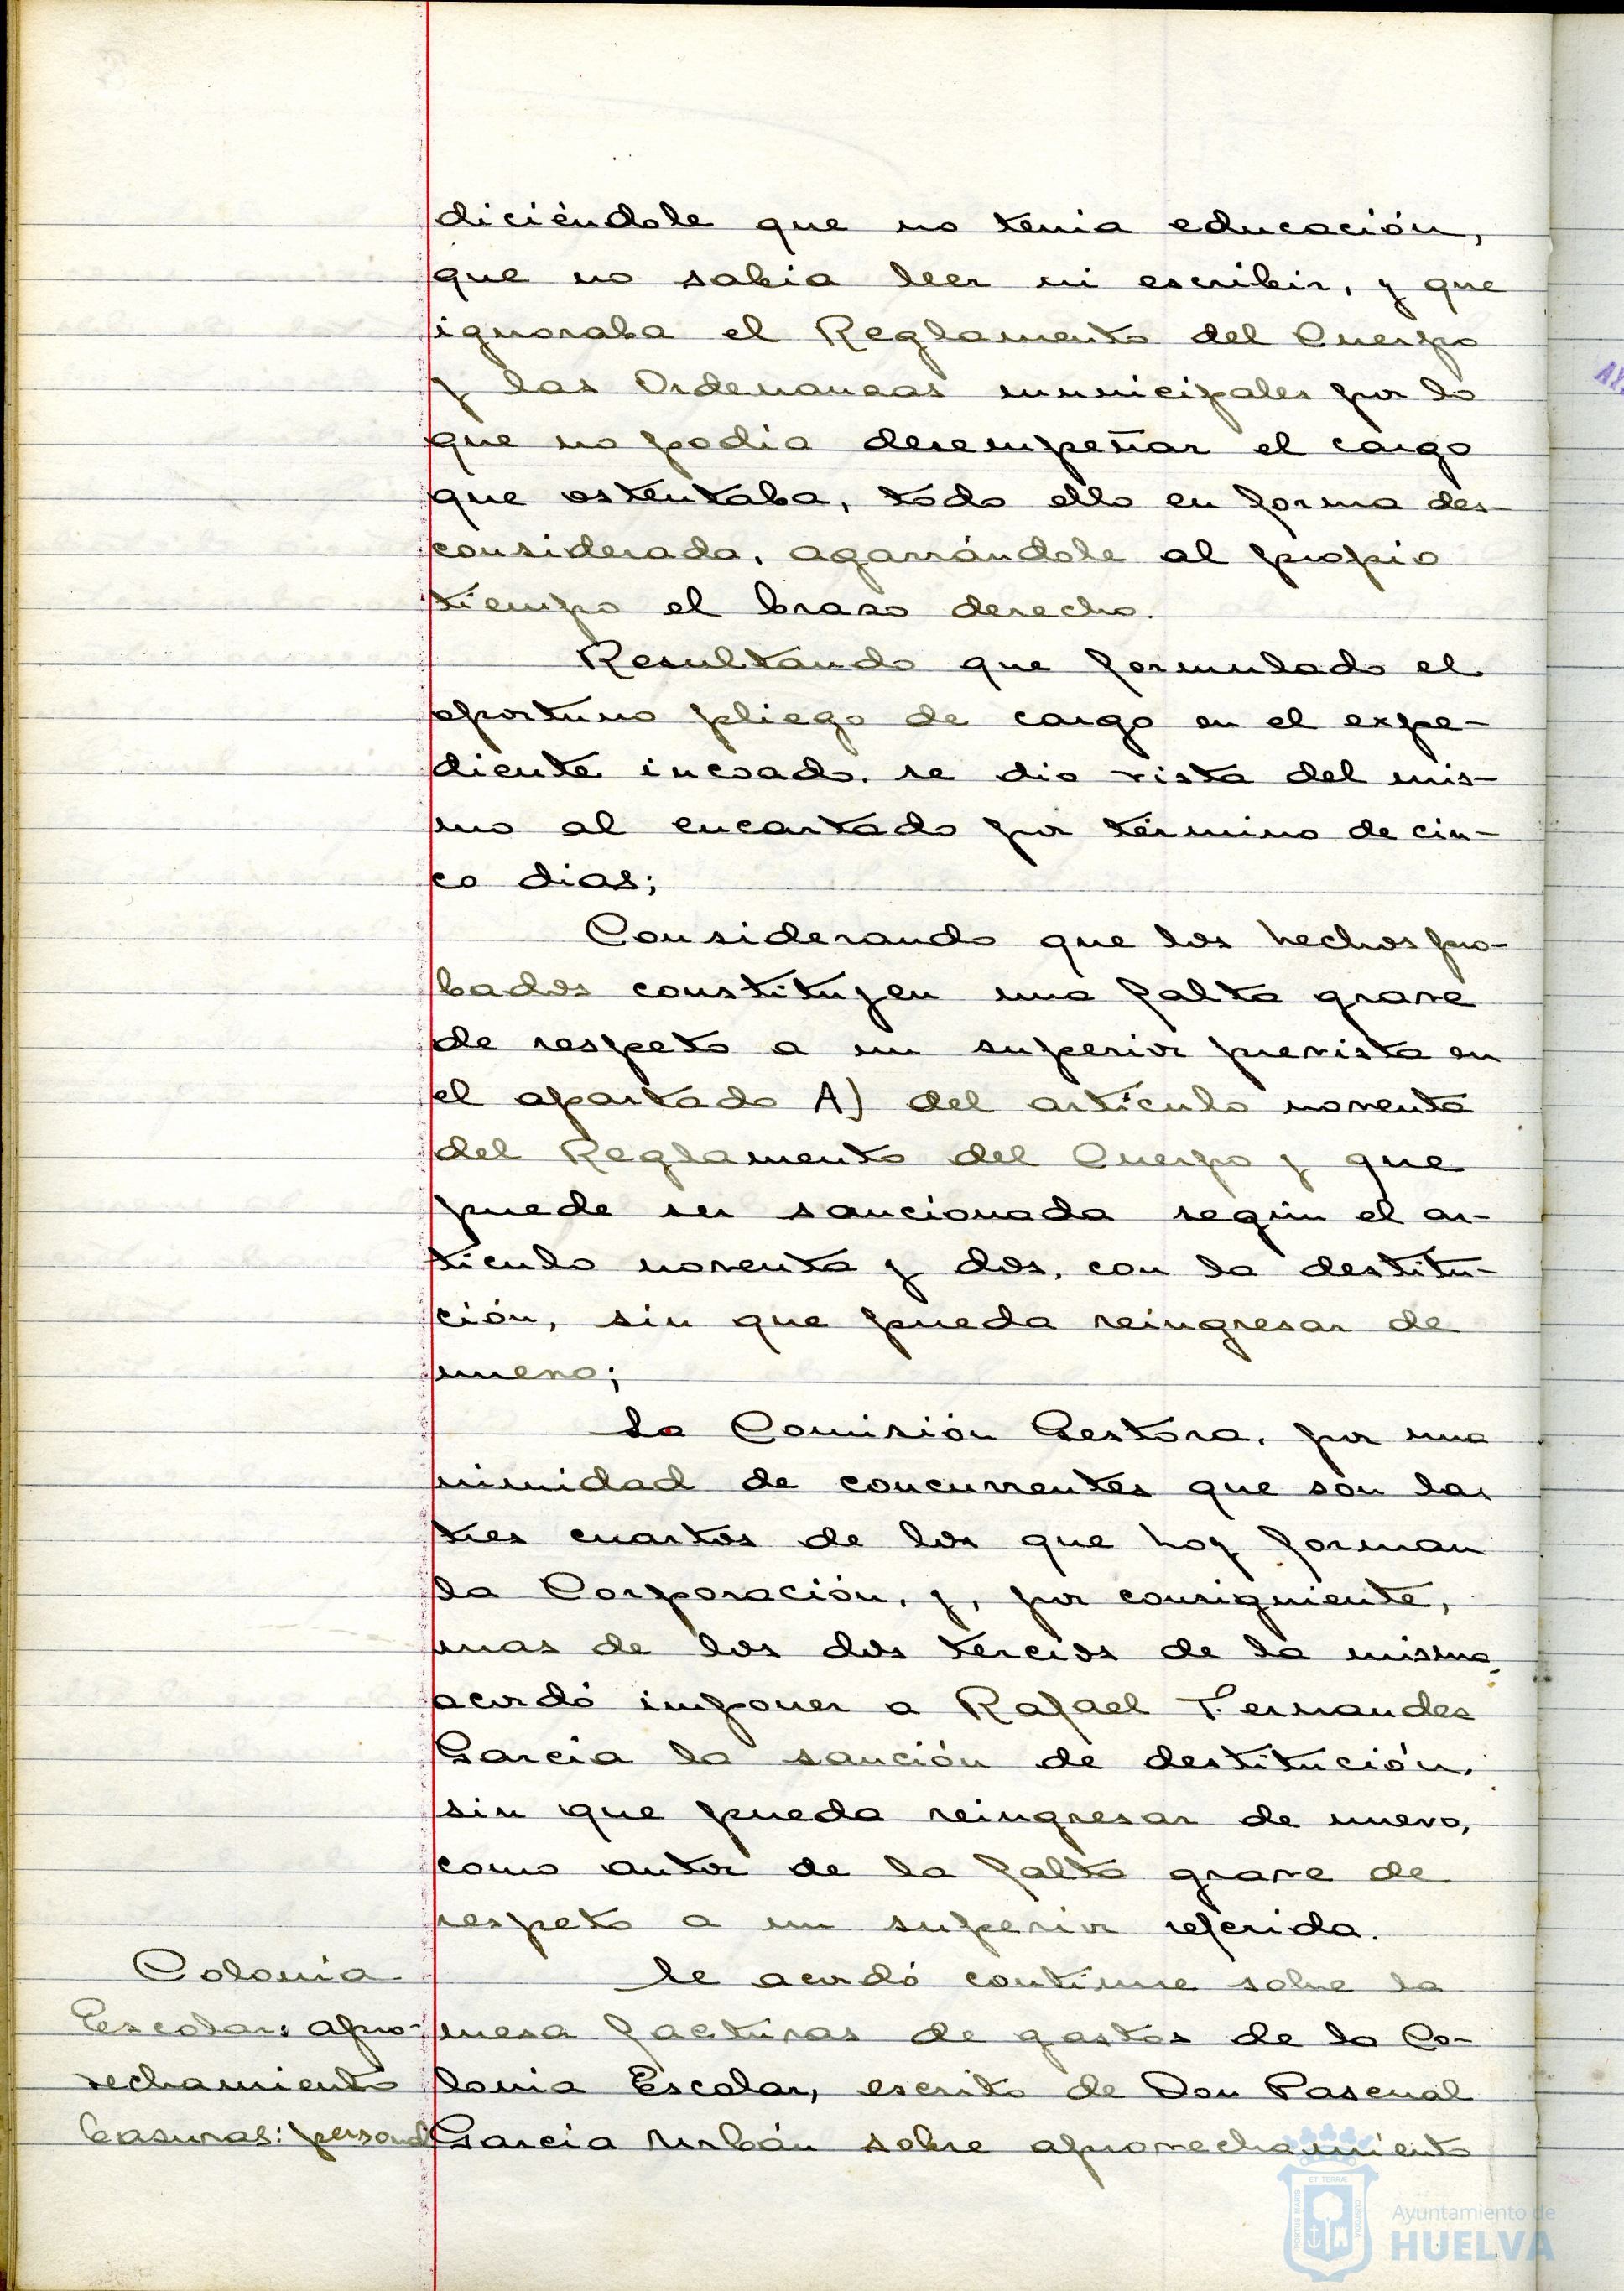 diciéndole que no tenia educación,
que no sabia leer ni escribir, y que
ignoraba el Reglamento del Cuerpo
y las Ordenanzas municipales por lo
que no podia desempeñar el cargo
que ostentaba, todo ello en forma des-
considerada, agarrándole al propio
tiempo el brazo derecho.
Resultando que formulado el
oportuno pliego de cargo en el expe-
diente incoado, se dio vista del mis-
mo al encartado por término de cin-
co dias;
Considerando que los hechos pro-
bados constituyen una falta grave
de respeto a un superior prevista en
el apartado A) del artículo noventa
del Reglamento del Cuerpo y que
puede ser sancionada según el ar-
ticulo noventa y dos, con la destitu-
ción, sin que pueda reingresar de
nuevo;
La Comisión Gestora, por una
nimidad de concurrentes que son las
tres cuartos de los que hoy forman
la Corporación, y, por consiguiente,
mas de los dos tercios de la misma,
acordó imponer a Rafael Fernandez
Garcia la sanción de destitución,
sin que pueda reingresar de nuevo,
como autor de la falta grave de
respeto a un superior referida.
Colonia
Escolar: apro-
vechamiento
basuras: personal
Se acordó continue sobre la
mesa facturas de gastos de la Co-
lonia Escolar, escrito de Don Pascual
Garcia Urbán sobre aprovechamiento
Ayuntamiento de
HUELVA